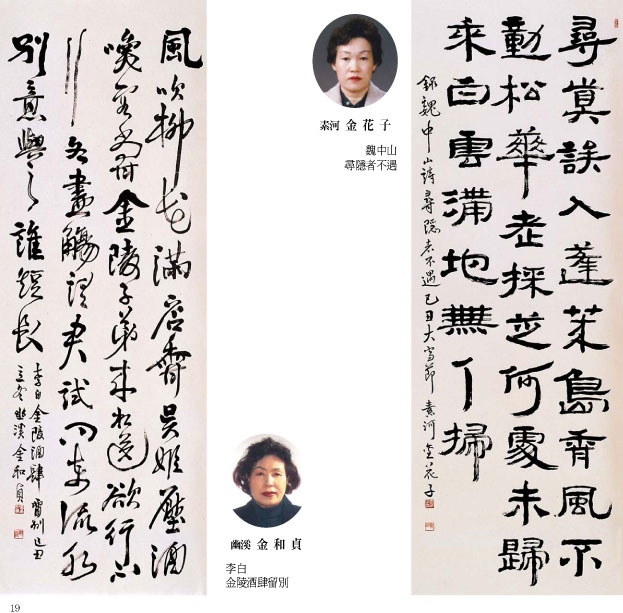 尋真誤入蓬萊島香風不
動松華老採芝何處未歸
來白雲滿地無人掃
錄魏中山詩尋隱者不遇 己丑大雪節 素河金花子
素河 金花子
魏中山
尋隱者不遇
風吹柳花滿店香吳姬壓酒
喚客嘗金陵子弟來相送欲行不
行各盡觴請君試問東流水
別意與之誰短長
李白金陵酒肆留別己丑
立冬幽溪金和貞
幽溪 金和貞
李白
金陵酒肆留別
19